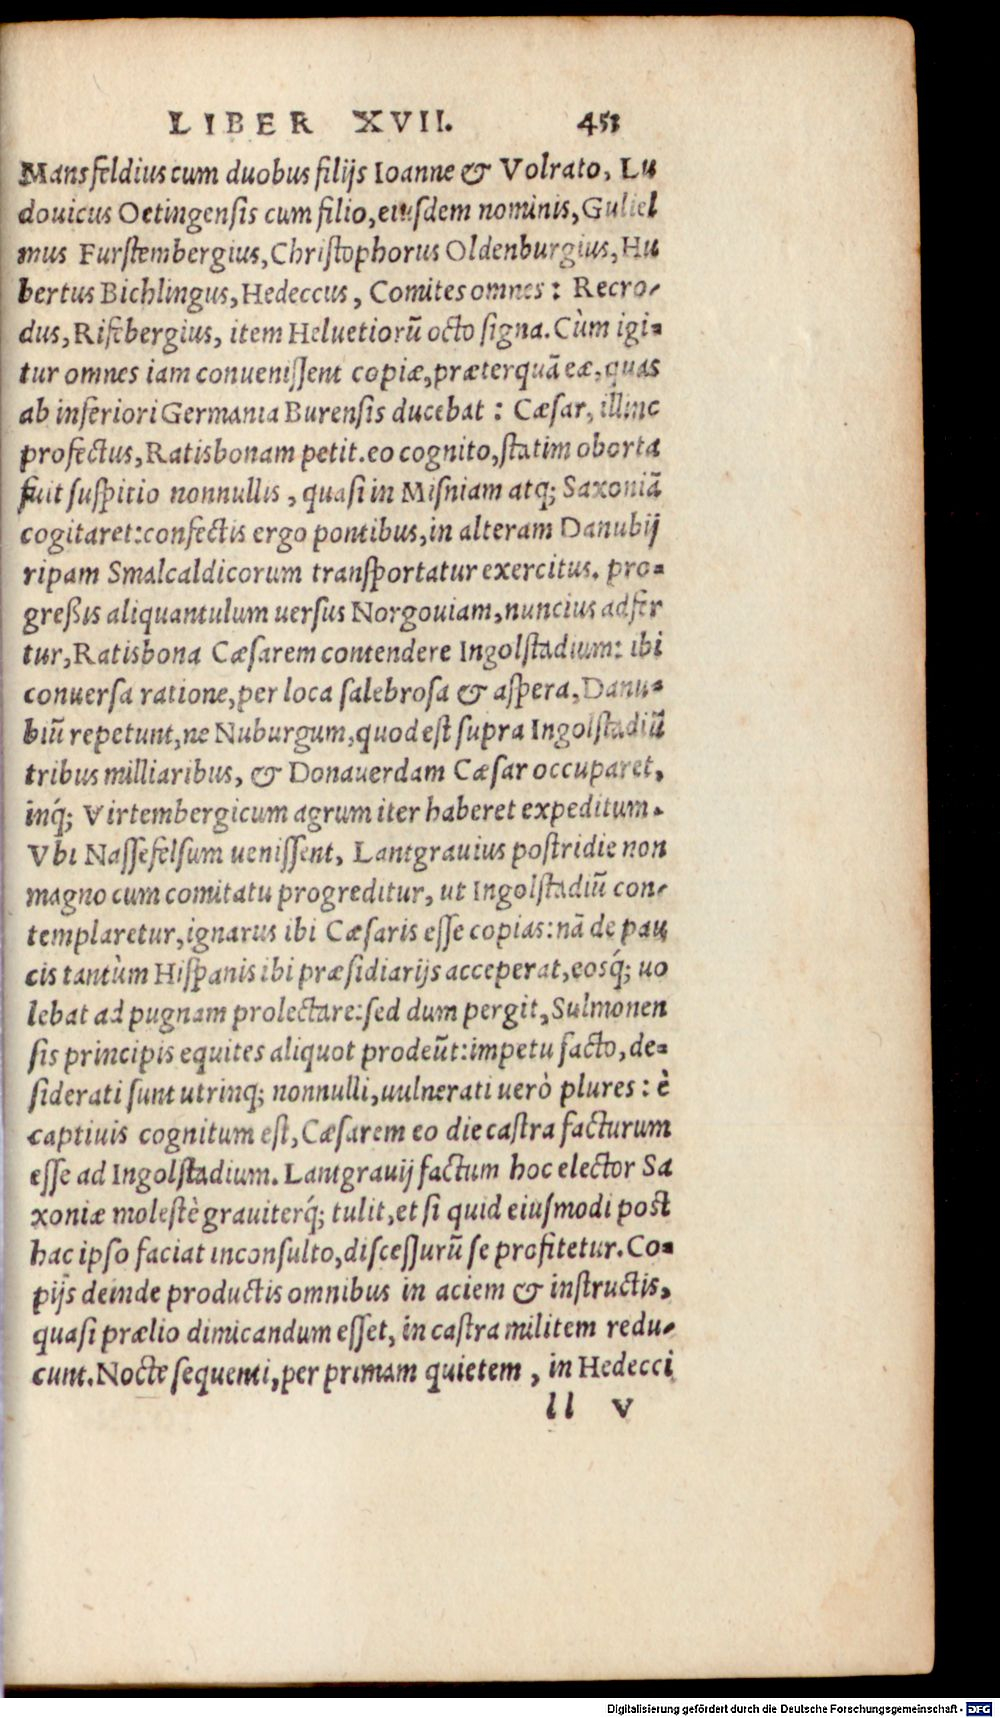 LIBER XVII. 451
Mansfeldius cum duobus filijs Ioanne & Volrato, Lu
douicus Oetingensis cum filio, eiusdem nominis, Guliel
mus Furstembergius, Christophorus Oldenburgius, Hu
bertus Bichlingus, Hedeccus, Comites omnes: Recro-
dus, Rifebergius, item Heluetiorū octo signa. Cùm igi-
tur omnes iam conuenissent copiæ, præterquā eæ, quas
ab inferiori Germania Burensis ducebat: Cæsar, illinc
profectus, Ratisbonam petit. eo cognito, statim oborta
fuit suspitio nonnullis, quasi in Misniam atq; Saxoniā
cogitaret: confectis ergo pontibus, in alteram Danubij
ripam Smalcaldicorum transportatur exercitus. pro-
greßis aliquantulum uersus Norgouiam, nuncius adfer
tur, Ratisbona Cæsarem contendere Ingolstadium: ibi
conuersa ratione, per loca salebrosa & aspera, Danu-
biū repetunt, ne Nuburgum, quod est supra Ingolstadiū
tribus milliaribus, & Donauerdam Cæsar occuparet,
inq́; Virtembergicum agrum iter haberet expeditum.
Vbi Nassefelsum uenissent, Lantgrauius postridie non
magno cum comitatu progreditur, ut Ingolstadiū con-
templaretur, ignarus ibi Cæsaris esse copias: nā de pau
cis tantùm Hispanis ibi præsidiarijs acceperat, eosq́; uo
lebat ad pugnam prolectare: sed dum pergit, Sulmonen
sis principis equites aliquot prodeūt: impetu facto, de-
siderati sunt utrinq; nonnulli, uulnerati uerò plures: è
captiuis cognitum est, Cæsarem eo die castra facturum
esse ad Ingolstadium. Lantgrauij factum hoc elector Sa
xoniæ molestè grauiterq́; tulit, et si quid eiusmodi post
hac ipso faciat inconsulto, discessurū se profitetur. Co-
pijs deinde productis omnibus in aciem & instructis,
quasi prælio dimicandum esset, in castra militem redu-
cunt. Nocte sequenti, per primam quietem, in Hedecci
ll v
Digitalisierung gefördert durch die Deutsche Forschungsgemeinschaft - DFG